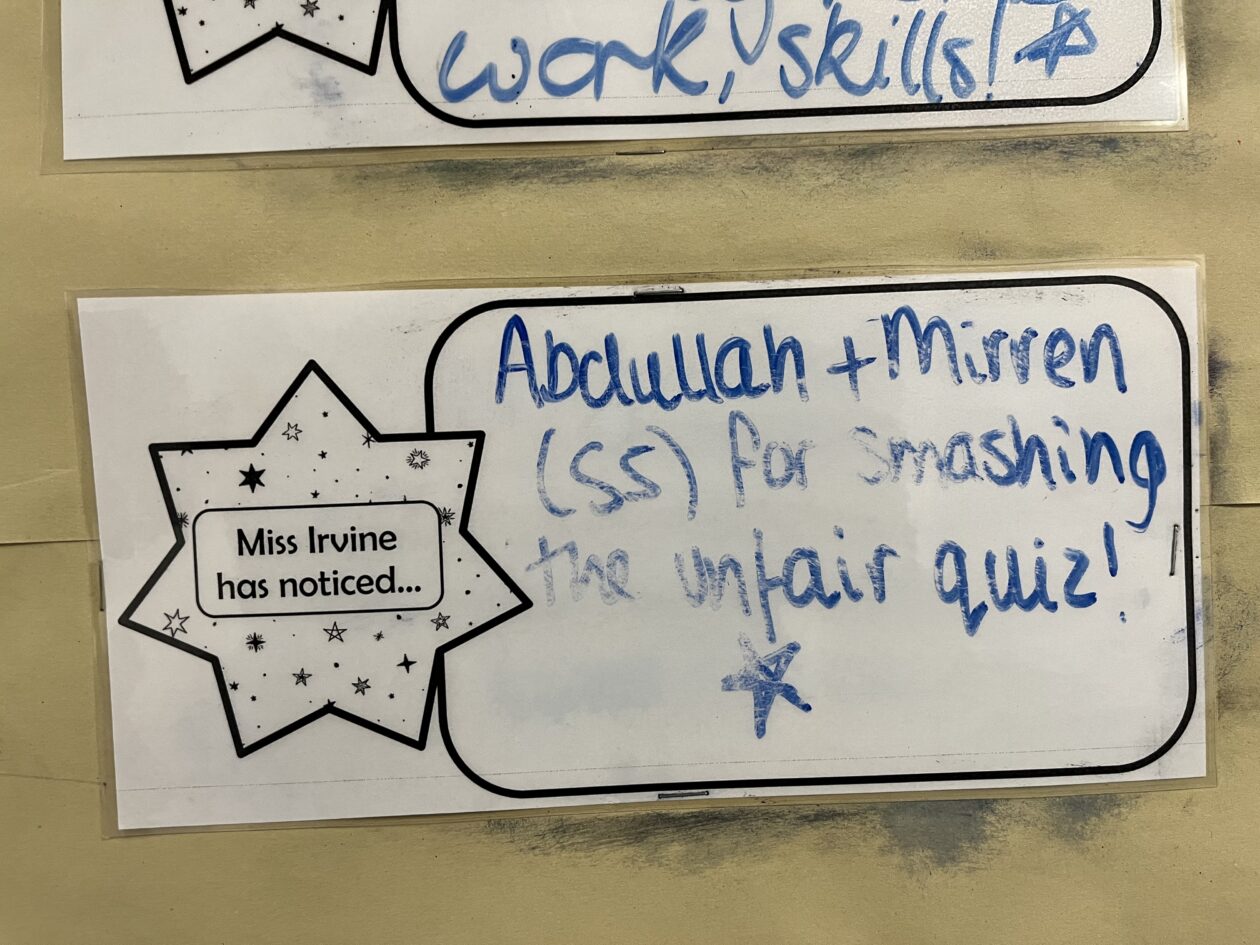 work, skills!
Miss Irvine
has noticed...
Abdullah + Mirren
(SS) for smashing
the unfair quiz!